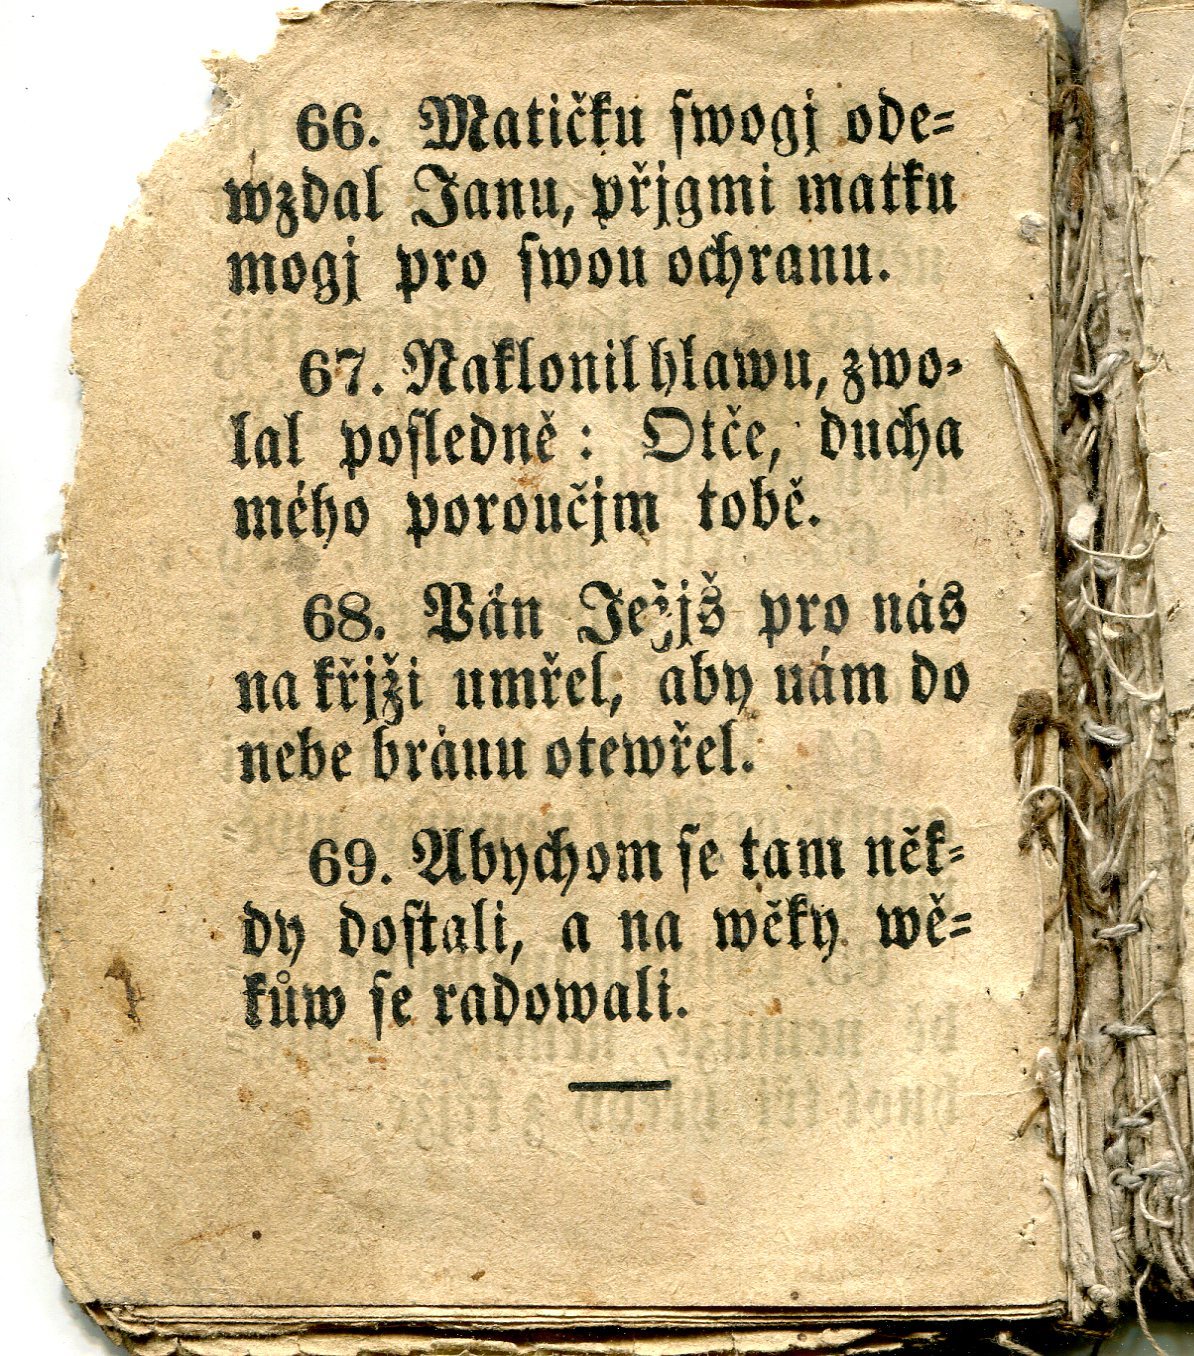 66. Matičku swogj ode-
wzdal Janu, přjgmi matku
mogj pro swou ochranu.
67. Naklonil hlawu, zwo-
lal posledně: Otče, ducha
mého poroučjm tobě.
68. Pán Ježjš pro nás
na křjži umřel, aby nám do
nebe bránu otewřel.
69. Abychom se tam něk-
dy dostali, a na wěky wě-
kůw se radowali.